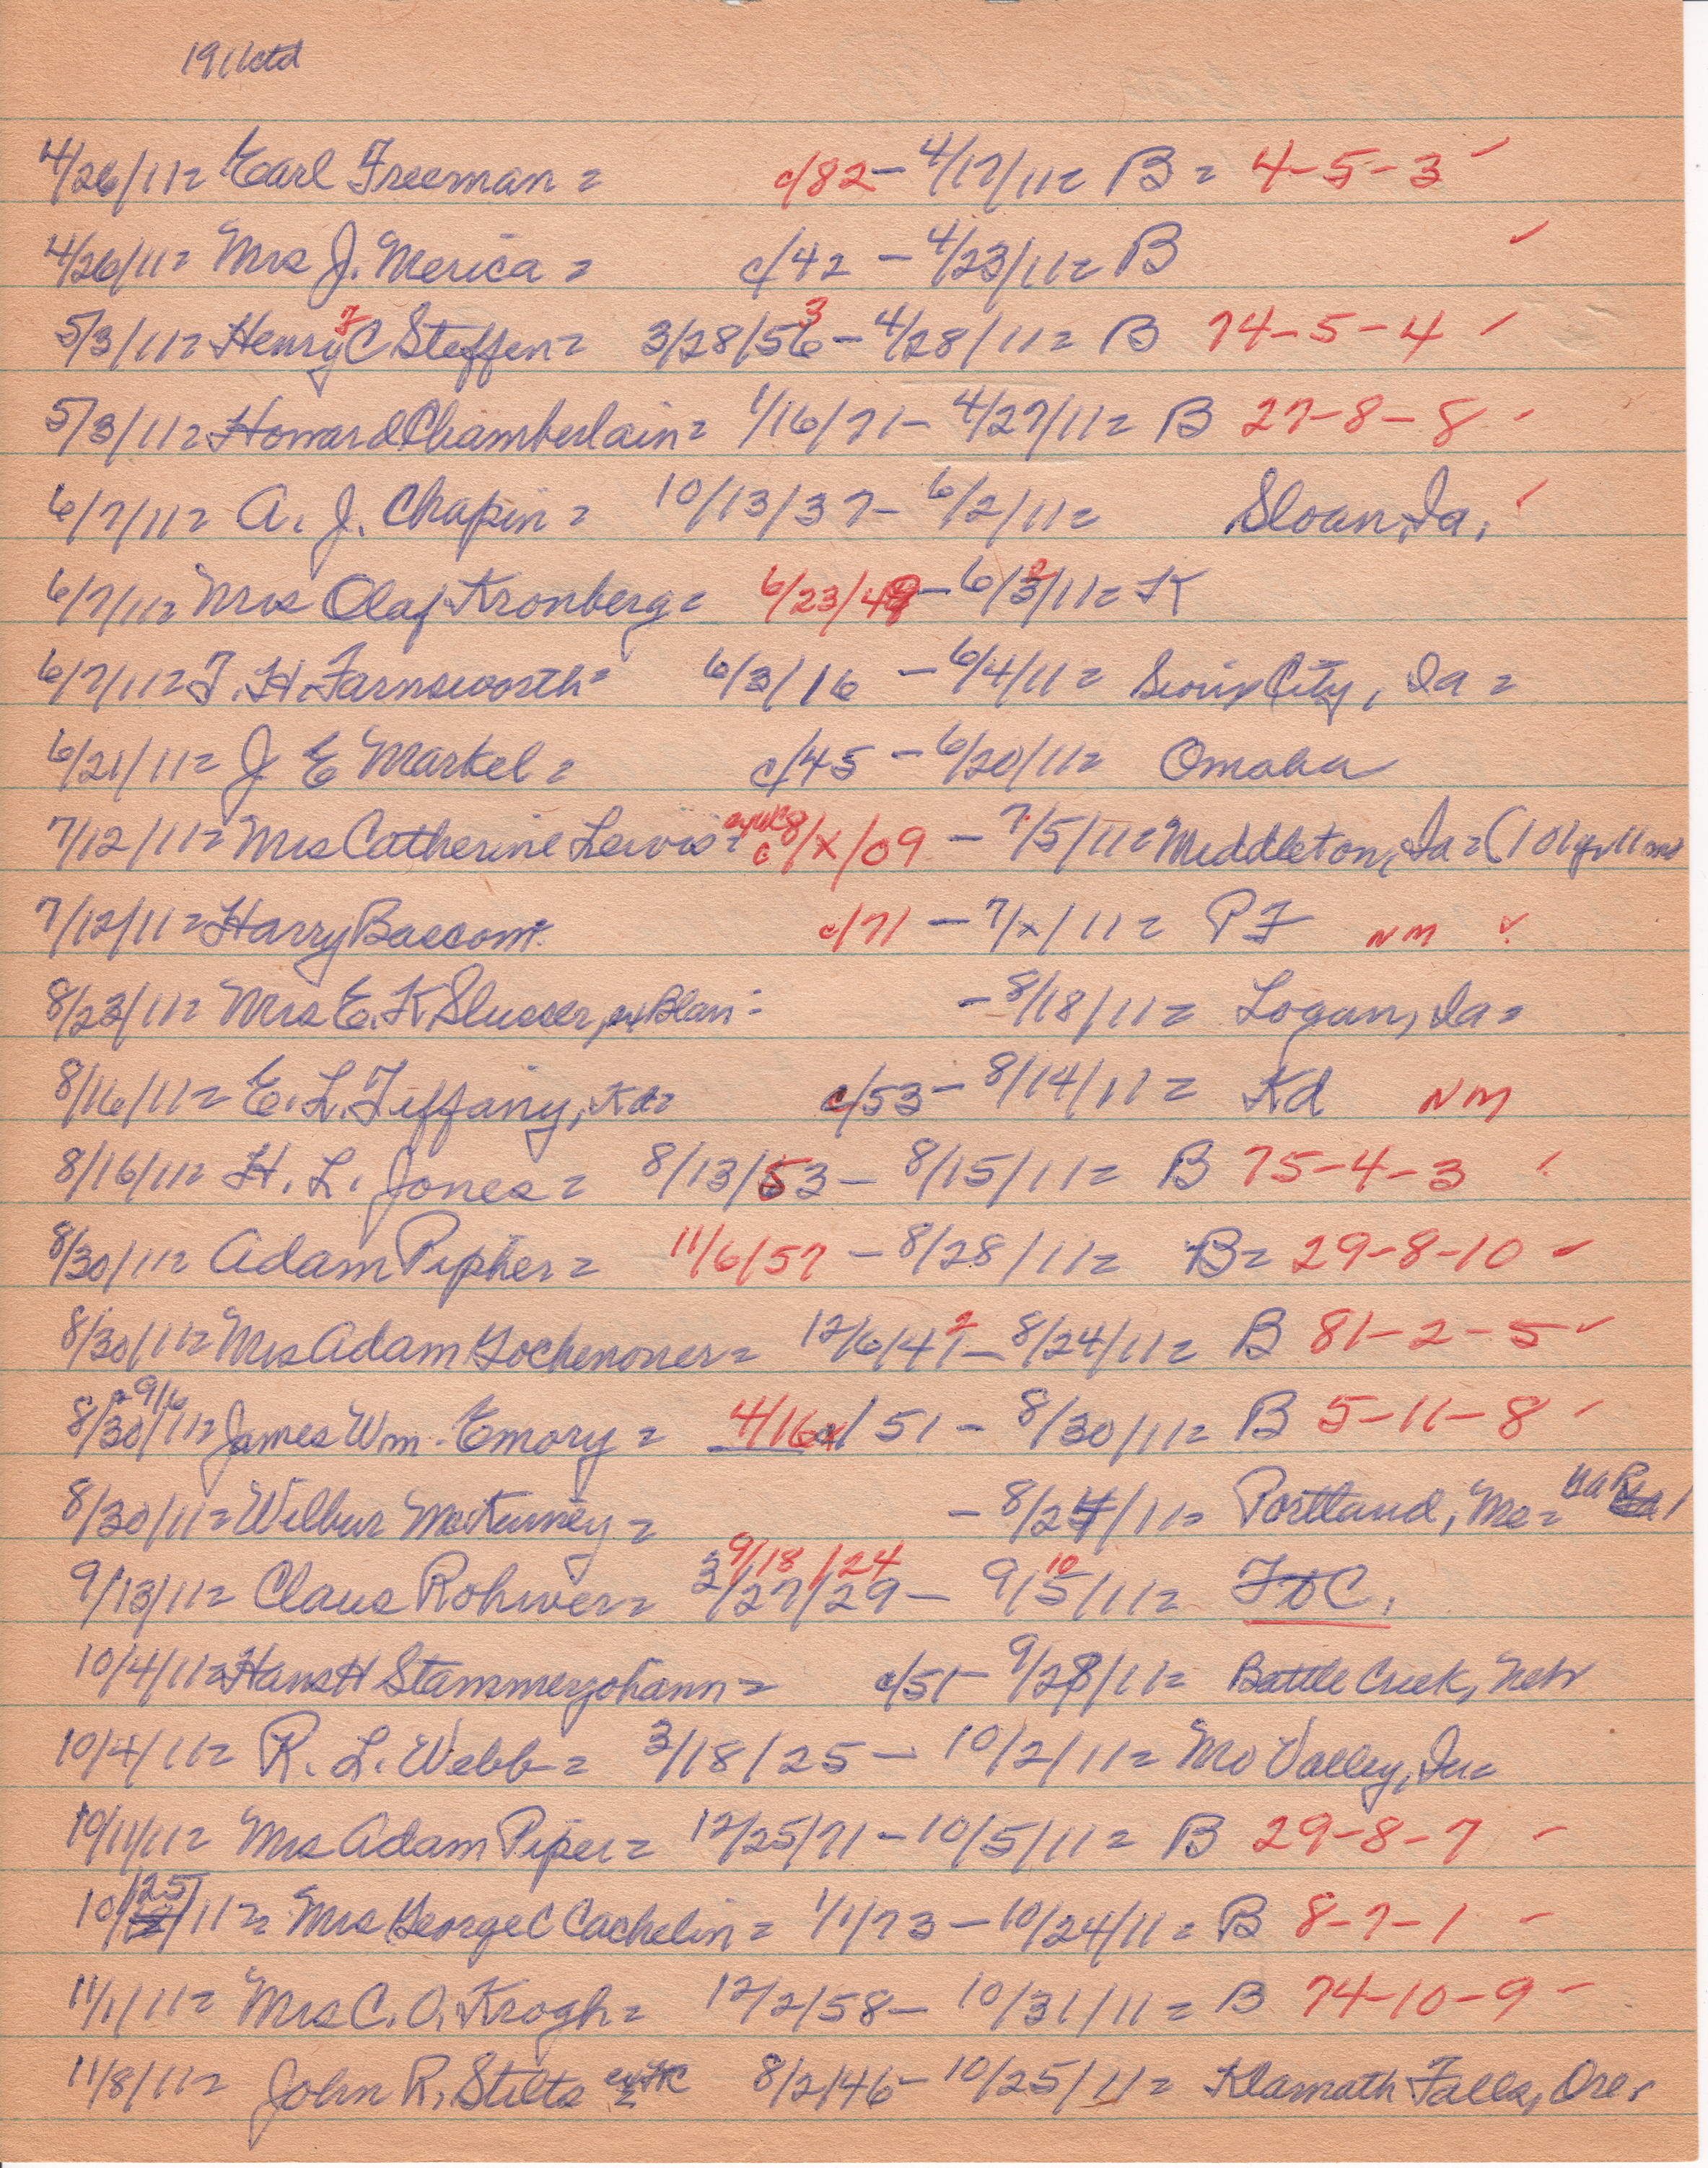 1911 ctd
4/26/11= Earl Freeman = c/82 - 4/17/11= B = 4-5-3 ✓
4/26/11= Mrs J. Merica = c/42 - 4/23/11= B ✓
5/3/11= Henry C Steffen= 3/28/56 3 - 4/28/11= B 74-5-4 ✓
5/3/11= Howard Chamberlain= 1/16/71- 4/27/11= B 27-8-8 ✓
6/7/11= A. J. Chapin= 10/13/37- 6/2/11= Sloan, Ia, ✓
6/7/11= Mrs Olaf Kronberg= 6/23/49 - 6/3/11= K
6/7/11= F. H. Farnsworth= 6/3/16 - 6/4/11= Sioux City, Ia =
6/21/11= J E Markel = c/45 - 6/20/11= Omaha
7/12/11= Mrs Catherine Lewis= c8/x/09 - 7/5/11= Middleton, Ia = (101 yr 11 mo
7/12/11= Harry Baccom. c/71 - 7/x/11= PF NM ✓
8/23/11= Mrs E. K Slusser, ex Blair= - 8/18/11= Logan, Ia =
8/16/11= E. L. Tiffany, Kd= c/53 - 8/14/11= Kd NM
8/16/11= H. L. Jones = 8/13/53 - 8/15/11= B 75-4-3 ✓
8/30/11= Adam Pipher = 11/6/57 - 8/28/11= B= 29-8-10 ✓
8/30/11= Mrs Adam Gochenouer= 12/6/41 2 - 8/24/11= B 81-2-5 ✓
8/30 9/6/11= James Wm. Emory = 4/16/51 - 8/30/11= B 5-11-8 ✓
8/30/11= Wilbur McKinney = - 8/24/11= Portland, Me=
9/18/24 10
9/13/11= Claus Rohwer= 3/27/29 - 9/5/11= FtC.
10/4/11= Hans H Stammerjohann = c/51 - 9/28/11= Battle Creek, Neb
10/4/11= R. L. Webb = 3/18/25 - 10/2/11= Mo Valley, Ia=
10/11/11= Mrs Adam Piper= 12/25/71 - 10/5/11= B 29-8-7 ✓
10/25/11= Mrs George C Cachelin = 1/1/73 - 10/24/11= B 8-7-1 ✓
11/1/11= Mrs C. O. Krogh= 12/2/58 - 10/31/11= B 74-10-9 ✓
11/8/11= John R. Stilts 8/2/46 - 10/25/11= Klamath Falls, Ore.